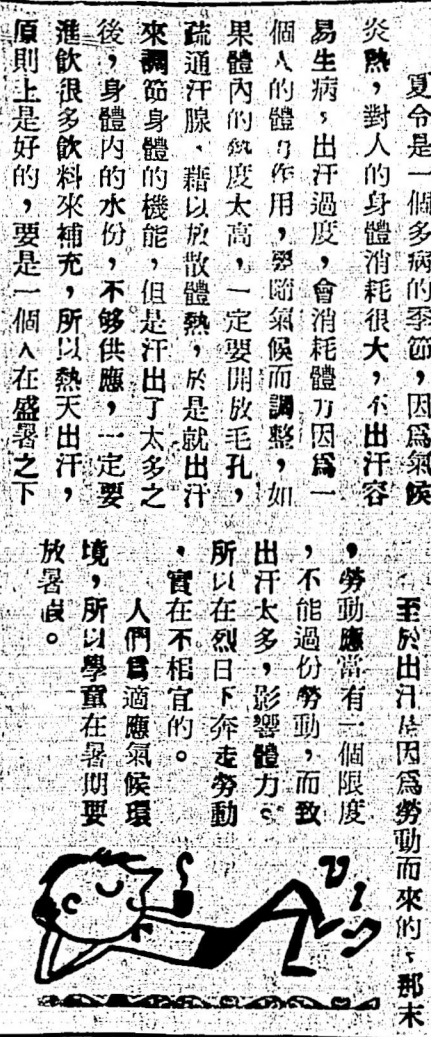 夏令是一個多病的季節，因爲氣候
炎熱，對人的身體消耗很大，不出汗容
易生病，出汗過度，會消耗體力因爲一
個人的體力作用，要隨氣候而調整，如
果體內的熱度太高，一定要開放毛孔，
疏通汗腺，藉以放散體熱，於是就出汗
來調節身體的機能，但是汗出了太多之
後，身體內的水份，不够供應，一定要
進飲很多飲料來補充，所以熱天出汗，
原則上是好的，要是一個人在盛暑之下
至於出汗是因爲勞動而來的，那末
，勞動應當有一個限度
，不能過份勞動，而致
出汗太多，影響體力。
所以在烈日下奔走勞動
，實在不相宜的。
人們爲適應氣候環
境，所以學童在暑期要
放暑假。